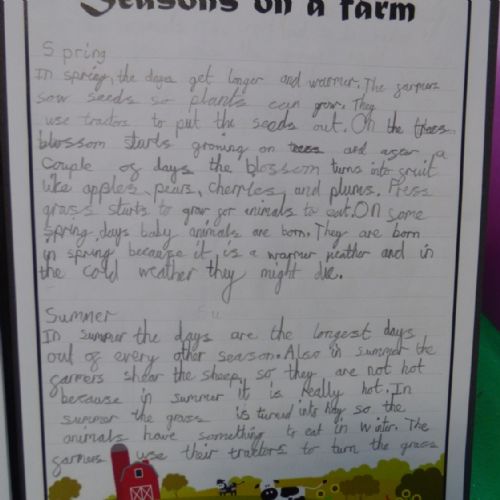 Seasons on a farm
Spring
In spring, the days get longer and warmer. The farmers
sow seeds so plants can grow. They
use tractors to put the seeds out. On the trees
blossom starts growing on and after a
couple of days the blossom turns into fruit
like apples, pears, cherries, and plums.
grass starts to grow for animals to eat. On some
spring days baby animals are born. They are born
in spring because it is a warmer weather and in
the cold weather they might die.
Summer
In summer the days are the longest days
out of every other season. Also in summer the
farmers shear the sheep, so they are not hot
because in summer it is really hot. In
summer the grass is turned into hay so the
animals have something to eat in winter. The
farmers use their tractors to turn the grass